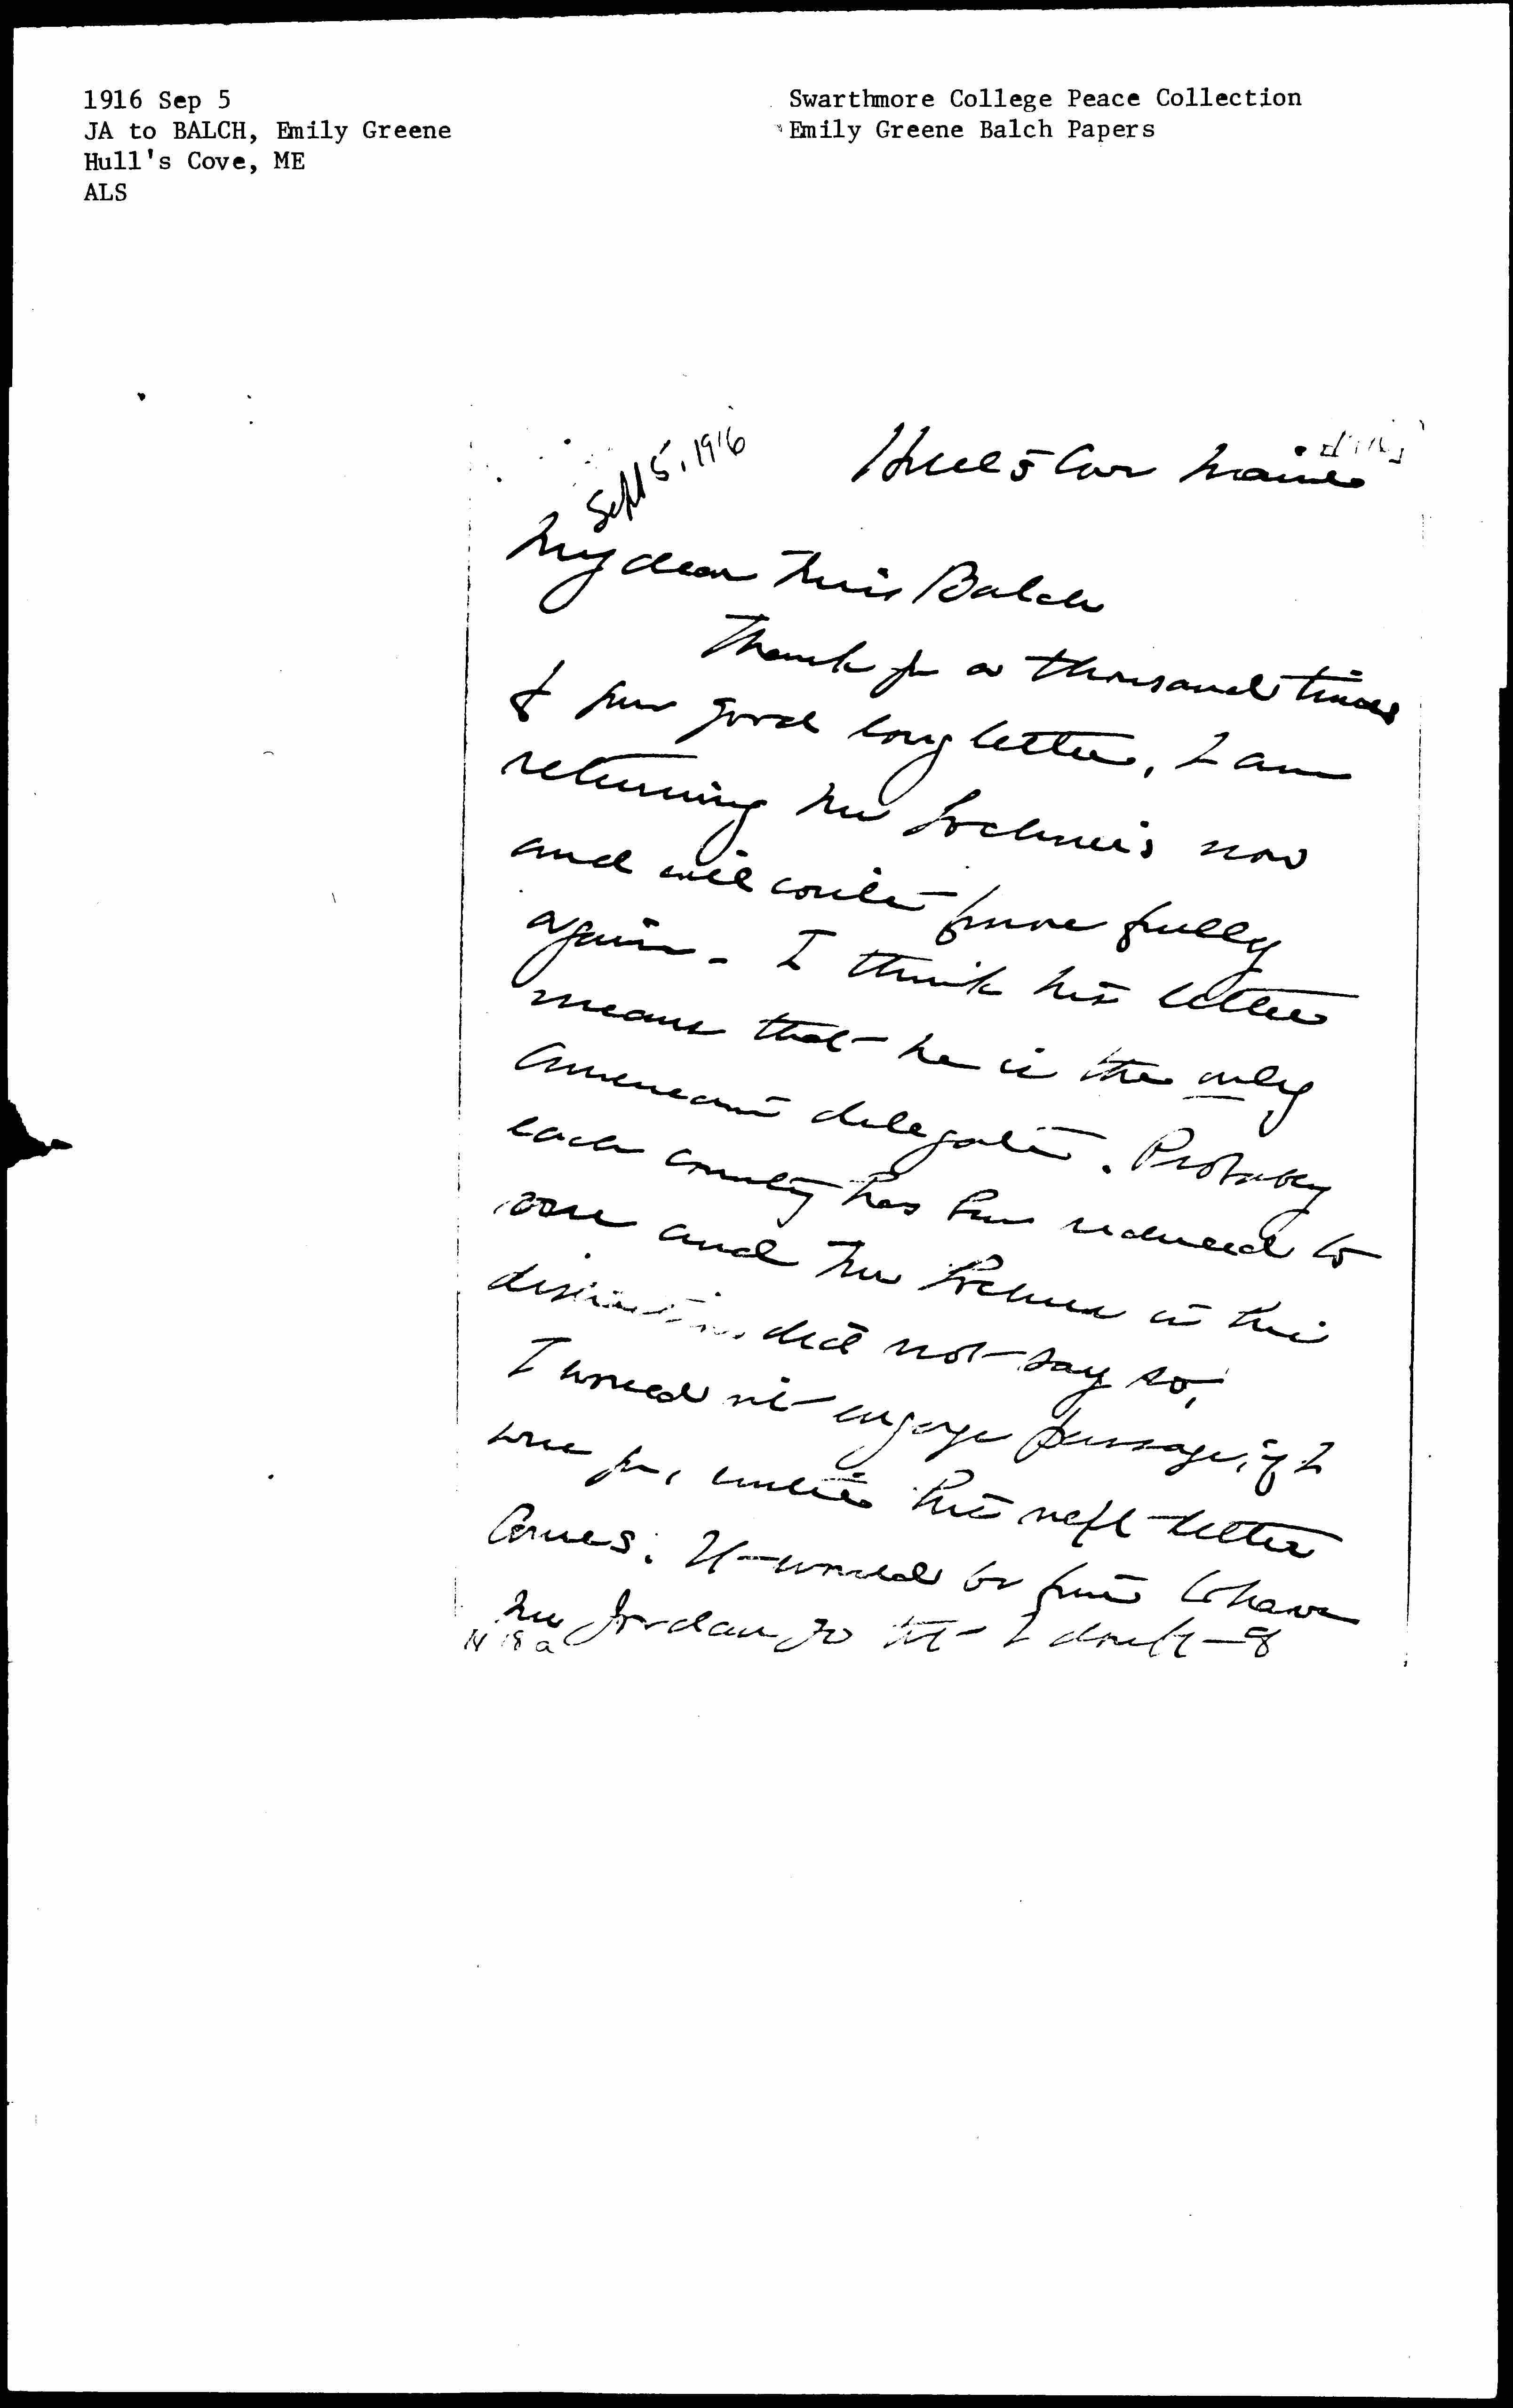 1916 Sep 5
JA to BALCH, Emily Greene
Hull's Cove, ME
ALS
Swarthmore College Peace Collection
Emily Greene Balch Papers
Sept 5, 1916
Hull's Cove Maine
My dear Miss Balch
Thank you a thousand times
for your good long letter, I am
returning Mr Lochner's now
and will write you more fully
again - I think his letter
means that he is the only
American delegate. Probably
each country has been reduced to
one and Mr Lochner in his
did not say so,
I would not engage passage, if I
were you, until his next letter
comes. It would be fine to have
Mr Jordan go but I doubt